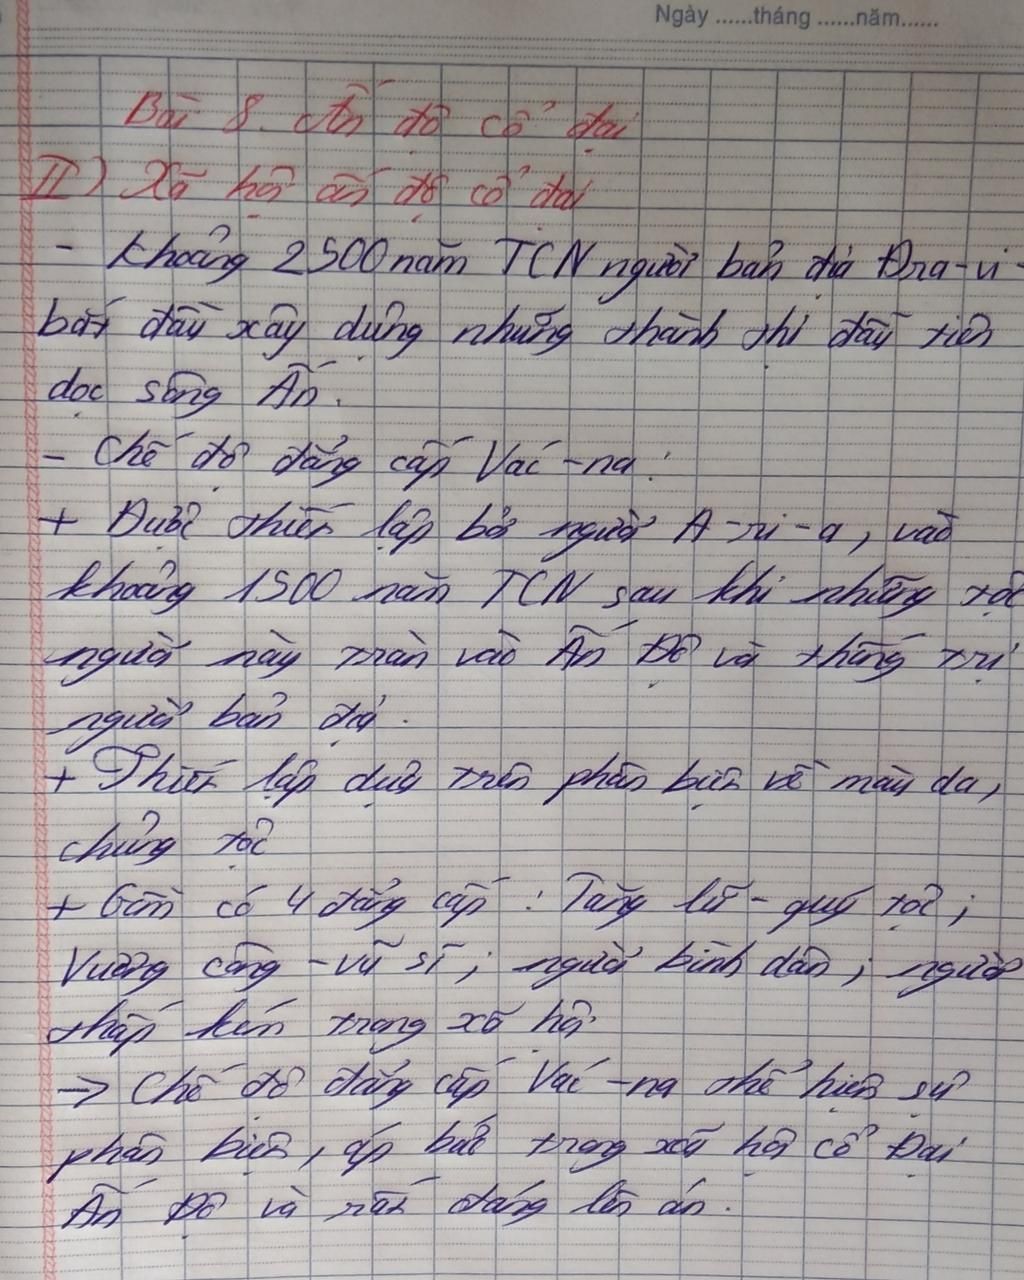 Ngày ......tháng ......năm......
Bài 8. Ấn độ cổ đại
II) Xã hội ấn độ cổ đại
- Khoảng 2500 năm TCN người bản địa Đra-vi-
bắt đầu xây dựng những thành thị đầu tiên
dọc sông Ấn.
- Chế độ đẳng cấp Vác-na:
+ Được thiết lập bởi người A-ri-a, vào
khoảng 1500 năm TCN sau khi những tộc
người này tràn vào Ấn Độ và thống trị
người bản địa.
+ Thiết lập dựa trên phân biệt về màu da,
chủng tộc
+ Gồm có 4 đẳng cấp: Tăng lữ - quý tộc;
Vương công - vũ sĩ; người bình dân; người
thấp kém trong xã hội
→ Chế độ đẳng cấp Vác-na thể hiện sự
phân biệt, áp bức trong xã hội cổ Đại
Ấn Độ và rất đáng lên án.